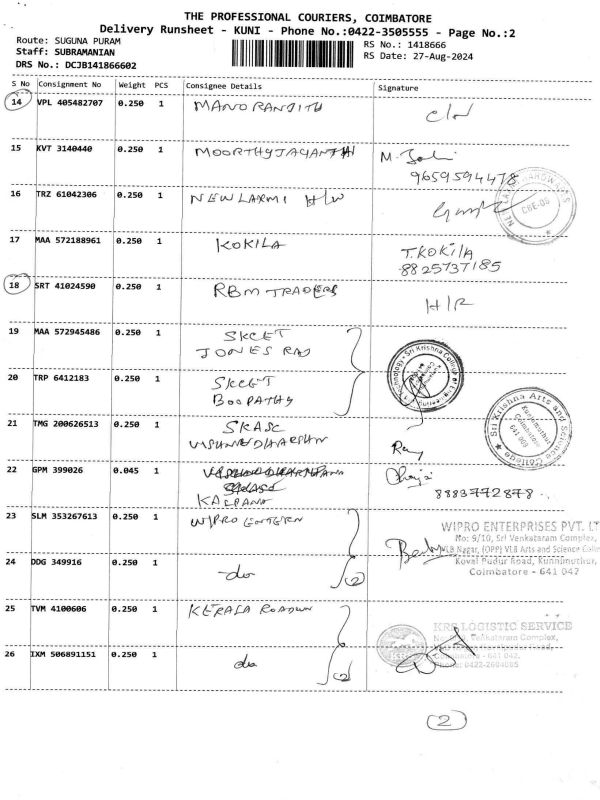 THE PROFESSIONAL COURIERS, COIMBATORE
Delivery Runsheet - KUNI - Phone No.:0422-3505555 - Page No.:2
Route: SUGUNA PURAM
Staff: SUBRAMANIAN
DRS No.: DCJB141866602
RS No.: 1418666
RS Date: 27-Aug-2024
S No Consignment No Weight PCS Consignee Details Signature
14 VPL 405482707 0.250 1 MANORANJITH
15 KVT 3140440 0.250 1 MOORTHYJAYANTHI M.
9659594478
16 TRZ 61042306 0.250 1 NEW LAXMI H/W
CBE-08
17 MAA 572188961 0.250 1 KOKILA T.KOKILA
8825737185
18 SRT 41024590 0.250 1 RBM TRADERS H/R
19 MAA 572945486 0.250 1 SKCET
JONES RAJ
Sri Krishna College of Engineering
20 TRP 6412183 0.250 1 SKCET
BOOPATHY
21 TMG 200626513 0.250 1 SKASC
VISHNUDHARSHAN
Sri Krishna Arts and Science College
Kuniamuthur
Coimbatore
641 008
22 GPM 399026 0.045 1
KALPANA
8883772878
23 SLM 353267613 0.250 1 WIPRO
WIPRO ENTERPRISES PVT. LT
No: 9/10, Sri Venkataram Complex,
VLB Nagar, (OPP) VLB Arts and Science Colle
Kovai Pudur Road, Kunnimuthur,
Coimbatore - 641 042
24 DDG 349916 0.250 1 do (2)
25 TVM 4100606 0.250 1 KERALA ROADWN
KRS LOGISTIC SERVICE
Venkataram Complex,
Coimbatore - 641 042.
Phone: 0422-2604085
26 IXM 506891151 0.250 1 do (2)
(2)